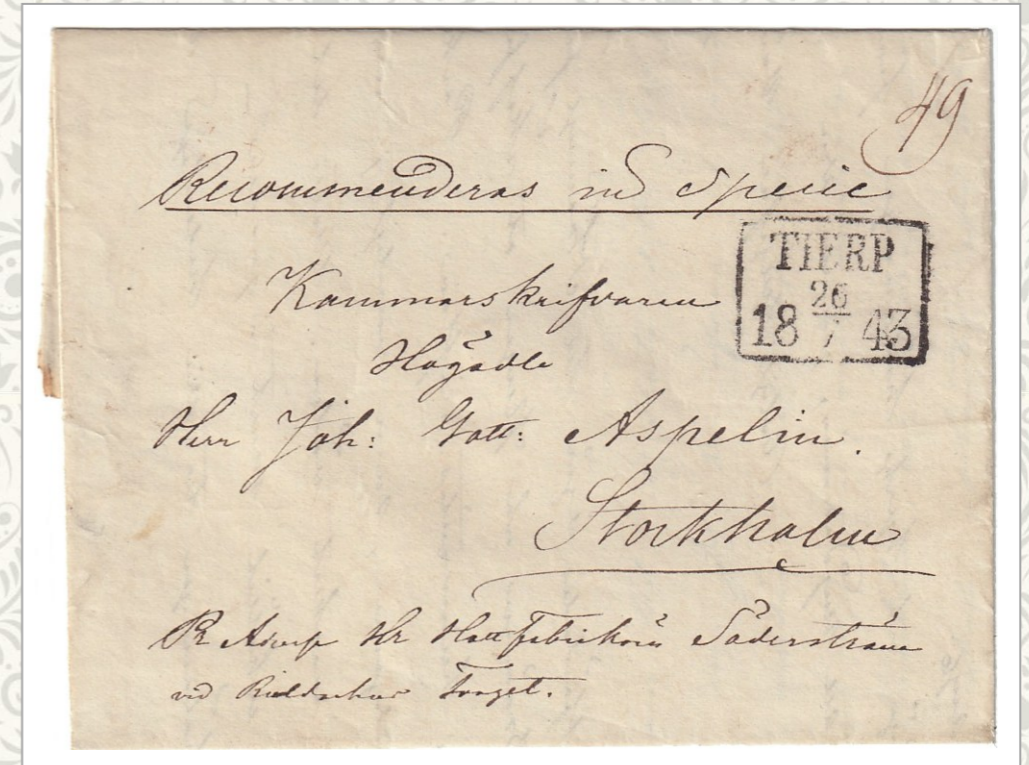 49
Recommenderas in Specie
TIERP
26
18 7 43
Kammarskrifvaren
Högädle
Herr Joh: Gott: Aspelin.
Stockholm
Hr Hattfabrikör Söderström
vid Torget.